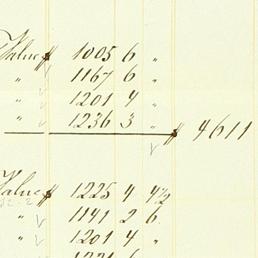 Value $ 1005 6 "
" 1167 6 "
" 1201 4 "
" 1236 3 " $ 4611
Value $ 1225 4 4½
" 1141 2 6
" 1201 4 "